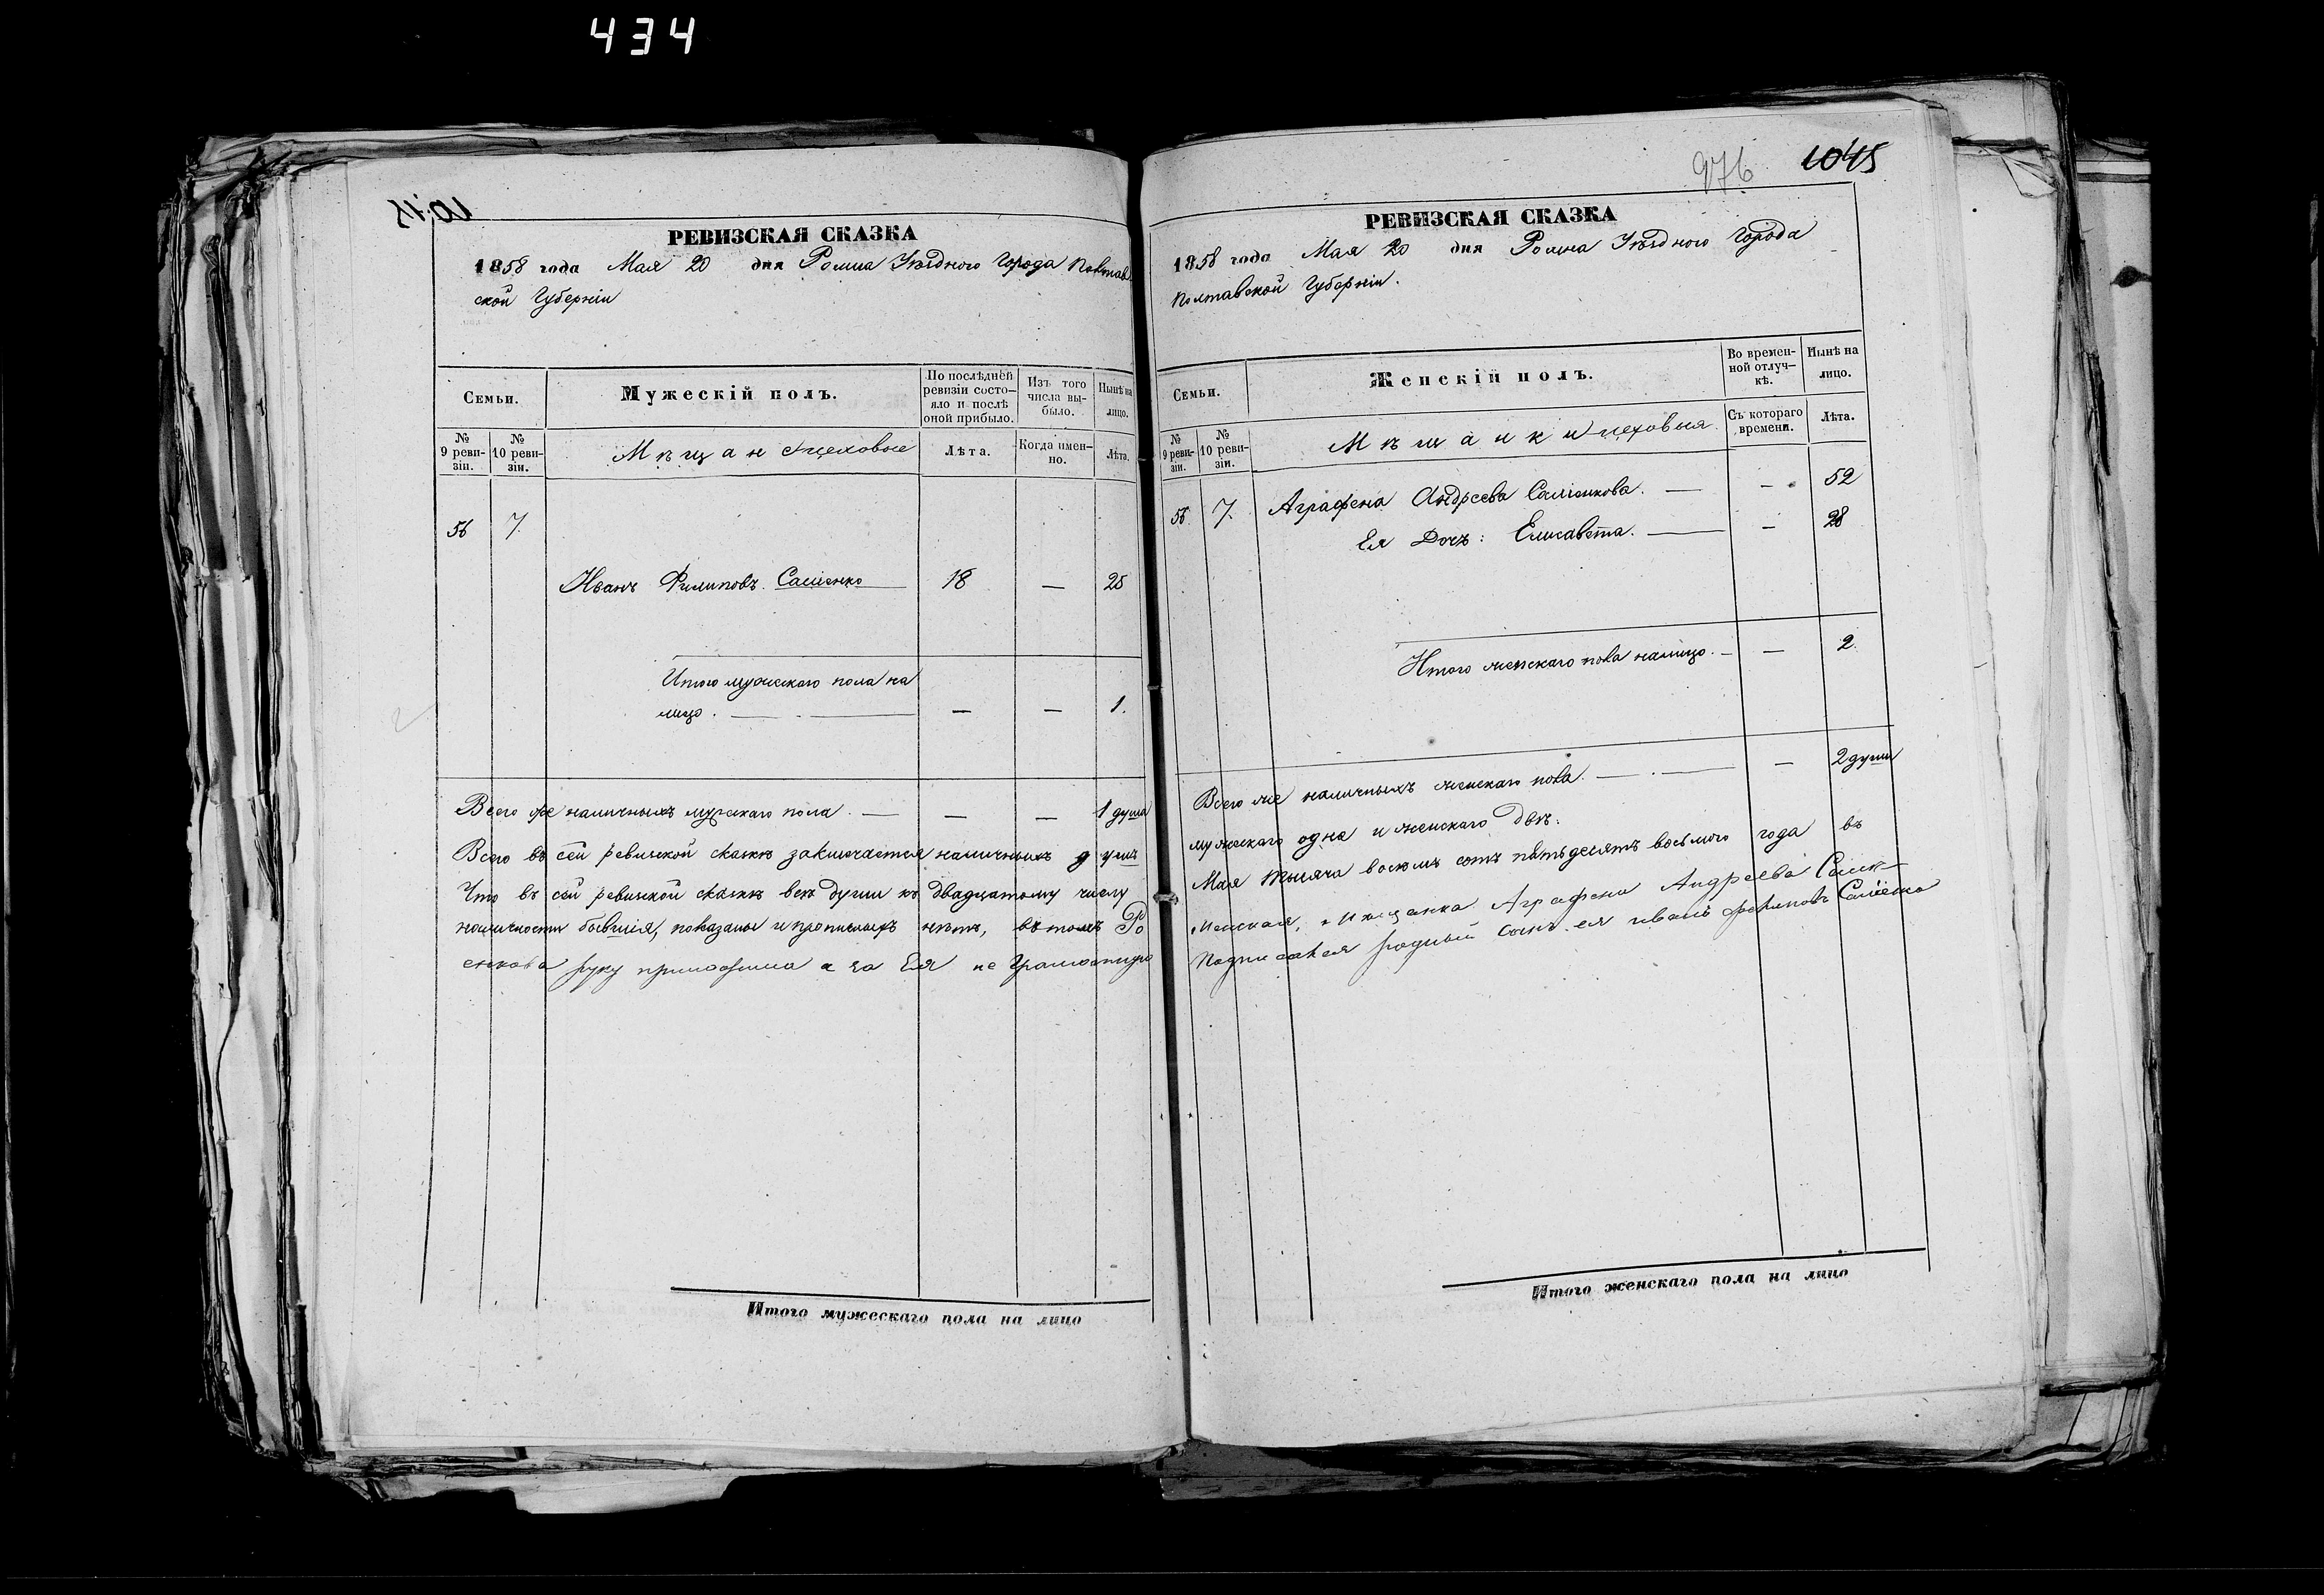 434
РЕВИЗСКАЯ СКАЗКА
1858 года Мая 20 дня Ромна Уѣзднаго Города Полтав
ской Губерніи
Семьи.
Мужескій полъ.
По послѣдней ревизіи состо-
яло и послѣ оной прибыло.
Изъ того числа вы-
было.
Нынѣ на лицо.
№ 9 реви-
зіи.
№ 10 реви-
зіи.
Мѣщане и цеховые
Лѣта.
Когда имен-
но.
Лѣта.
56 7.
Иванъ Филиповъ Сашенко 18 — 25
Итого мужескаго пола на
лицо. — — — 1.
Всего же наличныхъ мужскаго пола. — — — 1 душа
Всего въ сей ревизской сказкѣ заключается наличныхъ душъ
Что въ сей ревизской сказкѣ всѣ души къ двадцатому числу
наличности бывшія, показаны и прописныхъ нѣтъ, въ томъ Ро
енкова руку приложила а за Ея не Грамотную
Итого мужескаго пола на лицо
976 1045
РЕВИЗСКАЯ СКАЗКА
1858 года Мая 20 дня Ромна Уѣзднаго Города
Полтавской Губерніи.
Семьи.
Женскій полъ.
Во времен-
ной отлуч-
кѣ.
Нынѣ на лицо.
№ 9 реви-
зіи.
№ 10 реви-
зіи.
Мѣщанки и цеховыя.
Съ котораго времени.
Лѣта.
56 7. Аграфена Андреева Сашенкова. — — 52
Ея Дочъ: Елисавета. — — 28
Итого женскаго пола налицо. — — 2.
Всего же наличныхъ женскаго пола. — — — 2 души
мужескаго одна и женскаго двѣ.
Мая тысяча восемь сотъ пятьдесятъ восьмого года въ
менская, мѣщанка Аграфена Андреева Саш-
подписался родный сынъ ея иванъ филиповъ Сашенко
Итого женскаго пола на лицо